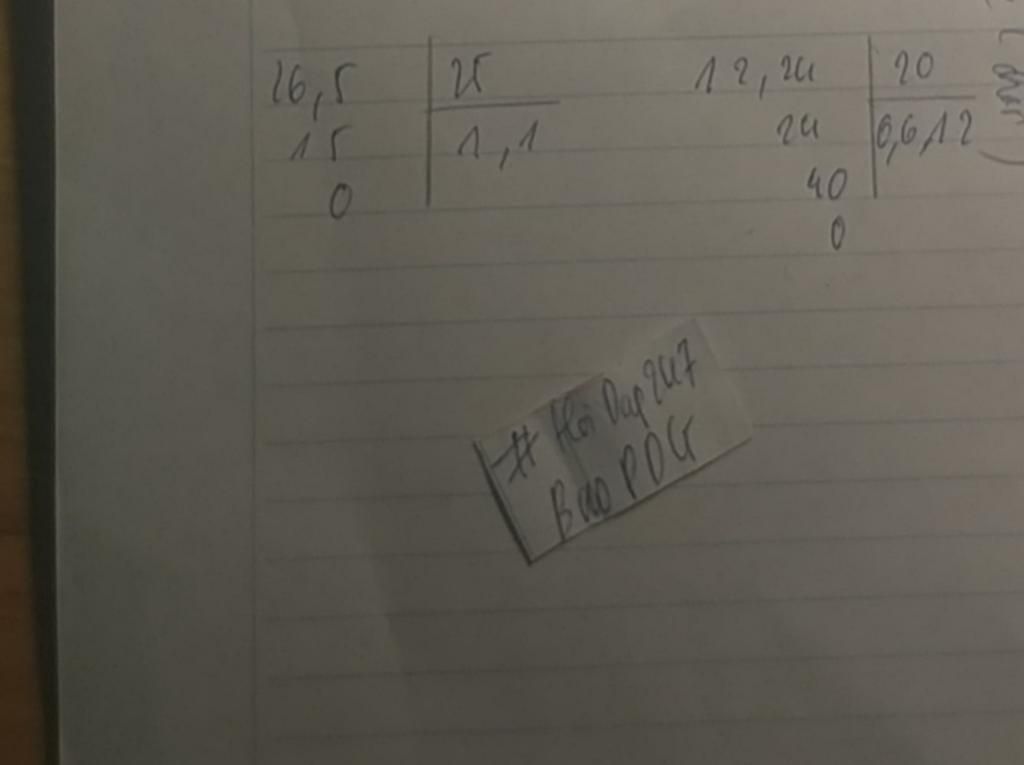 26,5 25
15 1,1
0
12,24 20
24 0,6,12
40
0
# Hoi Dap 247
Bao PDG